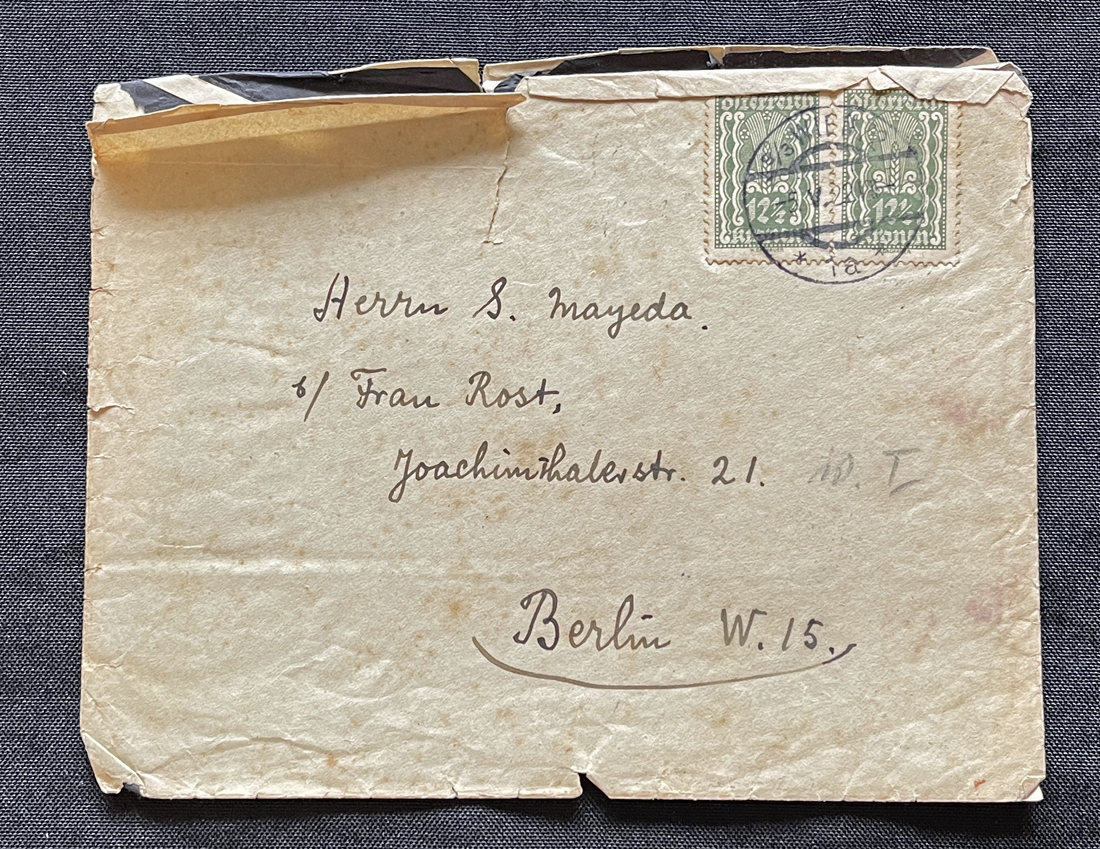 Österreich Österreich
12½ 12½
Kronen Kronen
WIEN
* 1a *
Herrn S. Mayeda.
b/ Frau Rost,
Joachimthalerstr. 21.
Berlin W. 15.